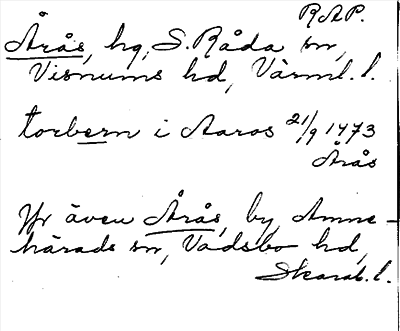 RAP.
Årås, hg, S. Råda sn,
Visnums hd, Värml. l.
torbern i Aaros 21/9 1473
Årås
Jfr även Årås, by, Amne-
härads sn, Vadsbo hd,
Skarab. l.